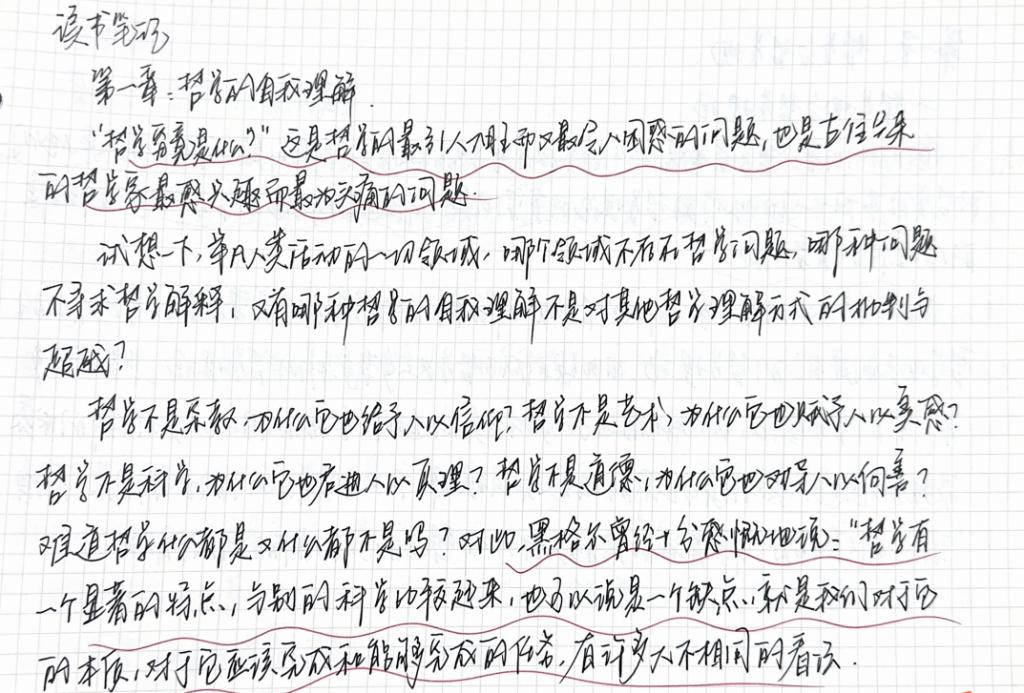 读书笔记
第一章:哲学的自我理解.
"哲学究竟是什么?"这是哲学的最引人入胜而又最令人困惑的问题,也是古往今来
的哲学家最感兴趣而最为头痛的问题.
试想一下,举凡人类活动的一切领域,哪个领域不存在哲学问题,哪种问题
不寻求哲学解释,又有哪种哲学的自我理解不是对其他哲学理解方式的批判与
超越?
哲学不是宗教,为什么它也给予人以信仰?哲学不是艺术,为什么它也赋予人以美感?
哲学不是科学,为什么它也启迪人以真理?哲学不是道德,为什么它也劝导人以向善?
难道哲学什么都是又什么都不是吗?对此,黑格尔曾经十分感慨地说:"哲学有
一个显著的特点,与别的科学比较起来,也可以说是一个缺点,就是我们对于它
的本质,对于它应该完成和能够完成的任务,有许多大不相同的看法.